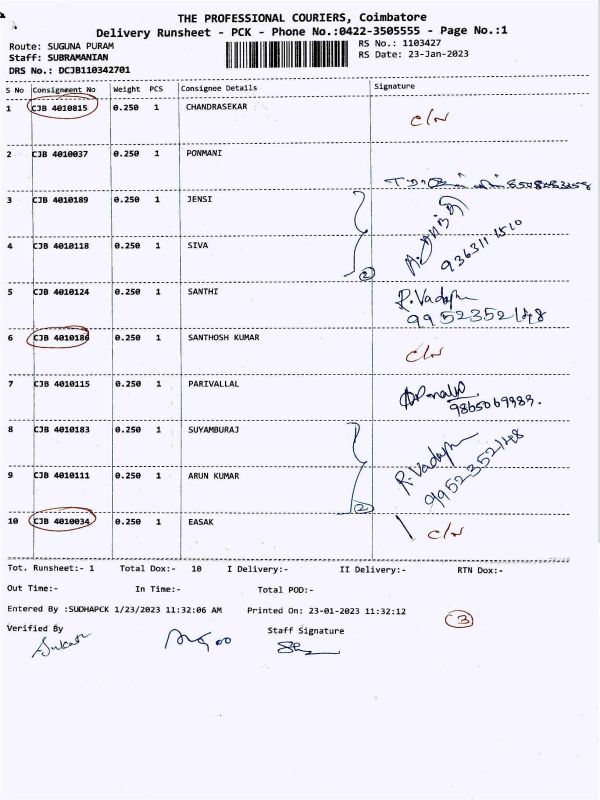 THE PROFESSIONAL COURIERS, Coimbatore
Delivery Runsheet - PCK - Phone No.:0422-3505555 - Page No.:1
Route: SUGUNA PURAM RS No.: 1103427
Staff: SUBRAMANIAN RS Date: 23-Jan-2023
DRS No.: DCJB110342701
S No Consignment No Weight PCS Consignee Details Signature
1 CJB 4010815 0.250 1 CHANDRASEKAR
2 CJB 4010037 0.250 1 PONMANI
3 CJB 4010189 0.250 1 JENSI
4 CJB 4010118 0.250 1 SIVA
9363111510
2
5 CJB 4010124 0.250 1 SANTHI
9952352148
6 CJB 4010186 0.250 1 SANTHOSH KUMAR
7 CJB 4010115 0.250 1 PARIVALLAL
8 CJB 4010183 0.250 1 SUYAMBURAJ
9 CJB 4010111 0.250 1 ARUN KUMAR
9952352148
2
10 CJB 4010034 0.250 1 EASAK
Tot. Runsheet:- 1 Total Dox:- 10 I Delivery:- II Delivery:- RTN Dox:-
Out Time:- In Time:- Total POD:-
Entered By :SUDHAPCK 1/23/2023 11:32:06 AM Printed On: 23-01-2023 11:32:12
3
Verified By Staff Signature